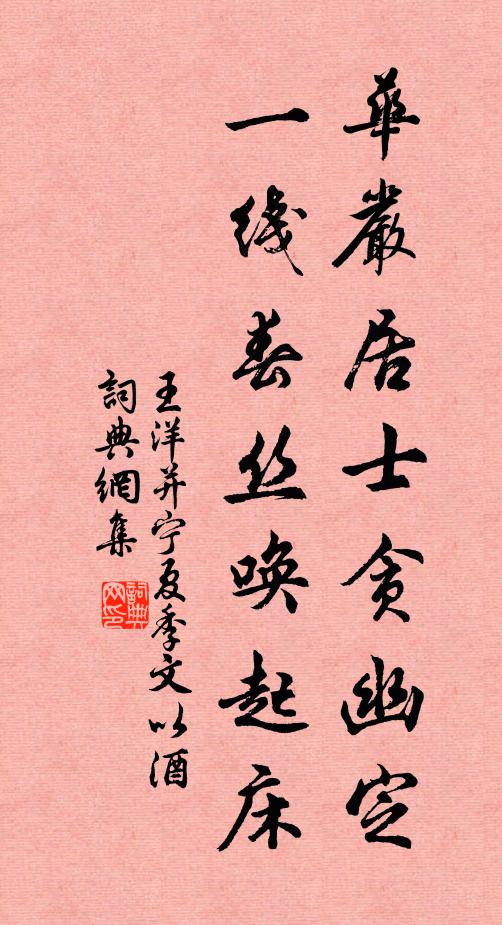 華嚴居士貪幽定
一綫春丝唤起床
王洋并宁夏季文以酒
詞典網集
詞典网印